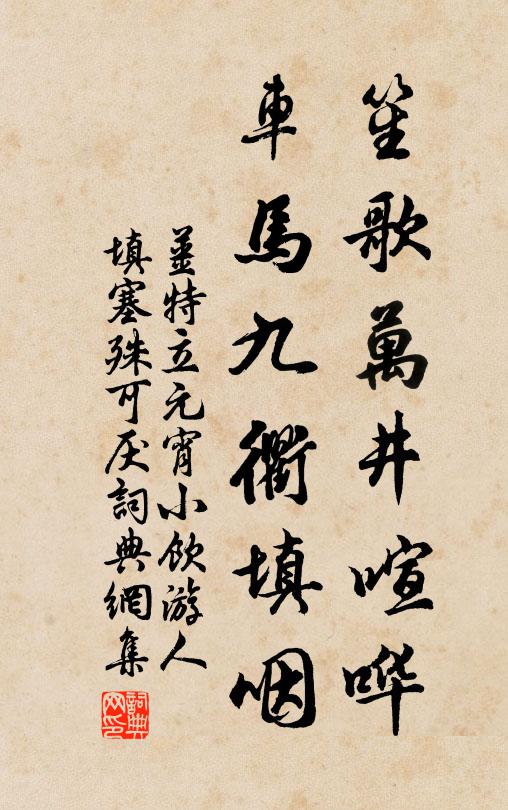 笙歌萬井喧哗
車馬九衢填咽
姜特立元宵小飲游人
填塞殊可厌詞典網集
詞典网印